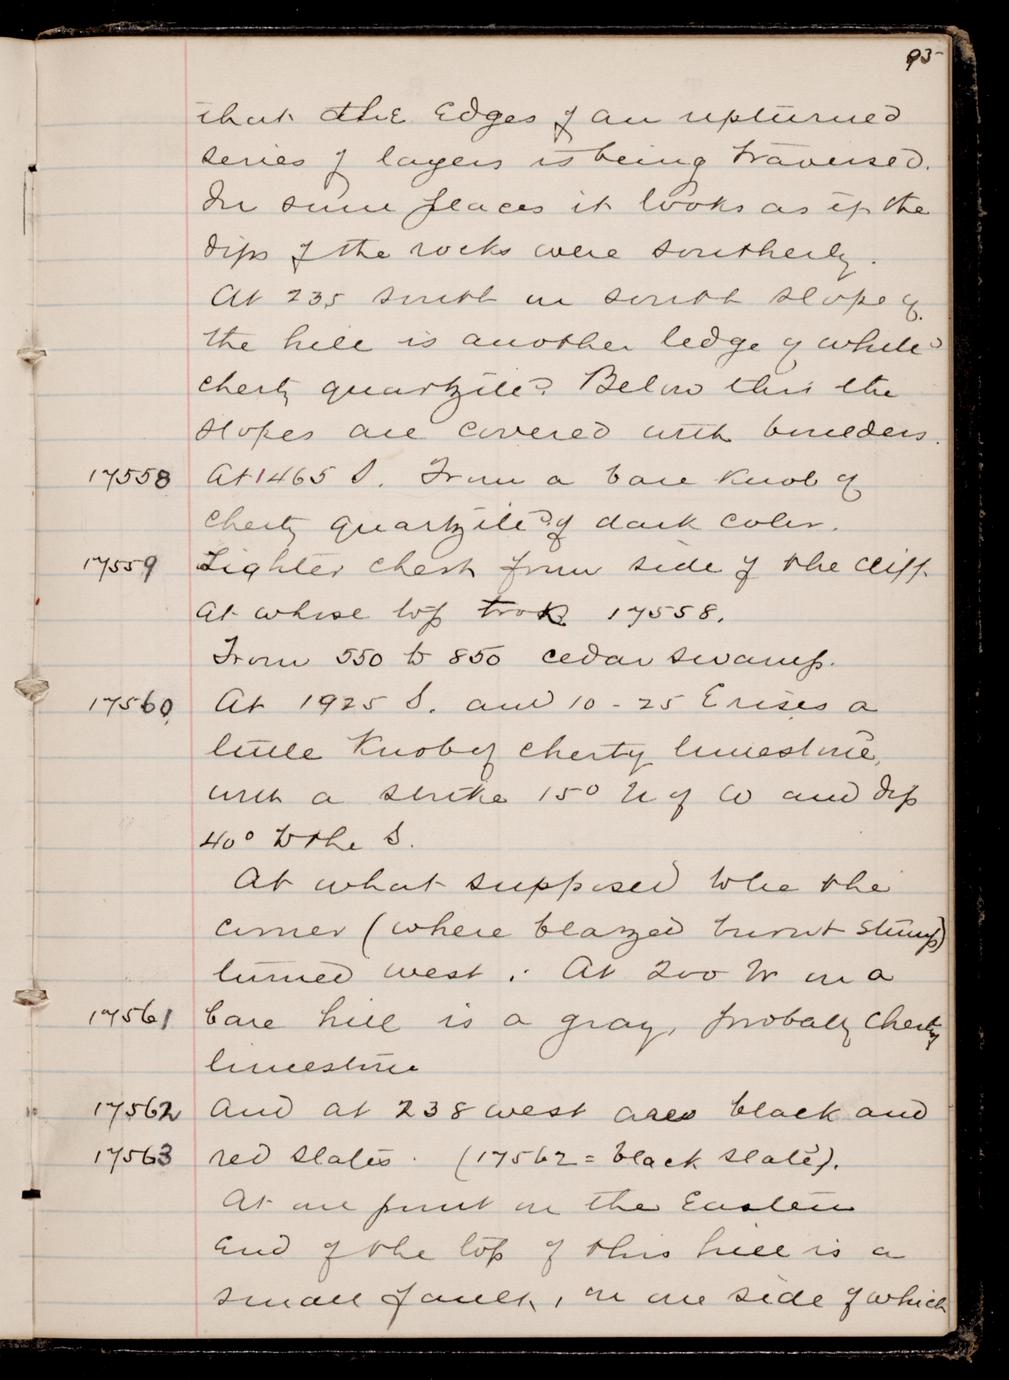 93
that the edges of an upturned
series of layers is being traversed.
In some places it looks as if the
dips of the rocks were southerly.
At 235 south on south slope of
the hill is another ledge of white
cherty quartzite. Below this the
slopes are covered with boulders.
17558 At 1465 S. From a bare knob of
cherty quartzite of dark color.
17559 Lighter chert from side of the cliff
at whose top took 17558.
From 550 to 850 cedar swamp.
17560 At 1925 S. and 10-25 E rises a
little knob of cherty limestone,
with a strike 15° N of W and dip
40° to the S.
At what supposed to be the
corner (where blazed burnt stump)
turned west. At 200 W on a
17561 bare hill is a gray, probably cherty
limestone
17562 And at 238 west are black and
17563 red slates. (17562 = black slate).
At one point on the Eastern
end of the top of this hill is a
small fault, on one side of which